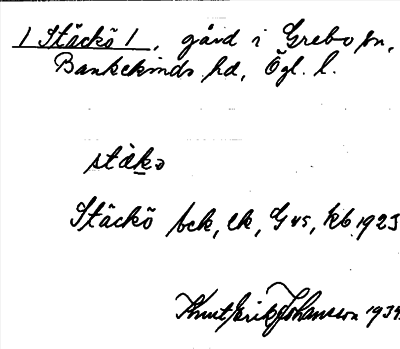 / Stäckö /, gård i Grebo sn,
Bankekinds hd, Ögl. l.
stäko
Stäckö bek, ek, Gvs, kb 1923
Knut Erik Johansson 1934.